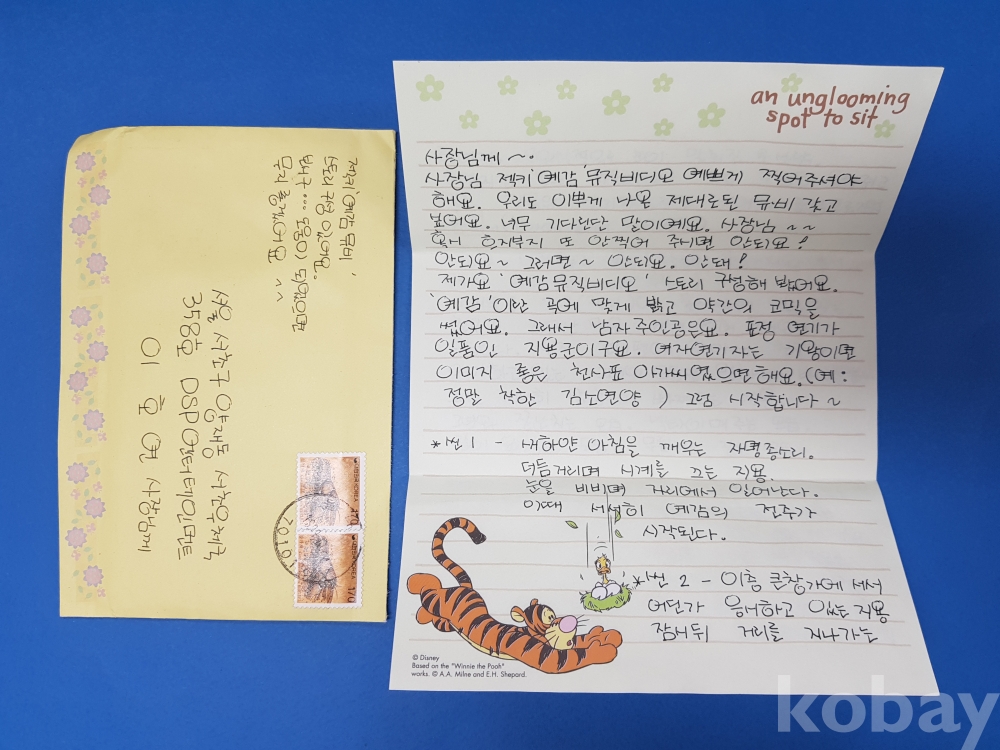 젝키 '예감' 뮤비
스토리 구상 있어요.
도움이 되었으면
무지 좋겠어요 ^^
서울 서초구 양재동 서초우체국
358호 DSP엔터테인먼트
이 호 연 사장님께
170
170
an unglooming
spot to sit
사장님께 ~.
사장님 젝키 '예감' 뮤직비디오 예쁘게 찍어주셔야
해요. 우리도 이쁘게 나온 제대로된 뮤비 갖고
싶어요. 너무 기다린단 말이예요. 사장님 ~~
혹시 흐지부지 또 안찍어 주시면 안되요!
안되요~ 그러면~ 안되요. 안돼!
제가요 '예감 뮤직비디오' 스토리 구성해 봤어요.
'예감' 이란 곡에 맞게 밝고 약간의 코믹을
썼어요. 그래서 남자주인공은요. 표정 연기가
일품인 지용군이구요. 여자연기자는 기왕이면
이미지 좋은 천사표 아가씨였으면 해요. (예:
정말 착한 김소연양) 그럼 시작합니다~
*씬 1 - 새하얀 아침을 깨우는 자명종소리.
더듬거리며 시계를 끄는 지용.
눈을 비비며 자리에서 일어난다.
이때 서서히 예감의 전주가
시작된다.
*씬 2 - 이층 큰창가에 서서
어딘가 응시하고 있는 지용
잠시뒤 거리를 지나가는
© Disney
Based on the "Winnie the Pooh"
works. © A.A. Milne and E.H. Shepard.
kobay